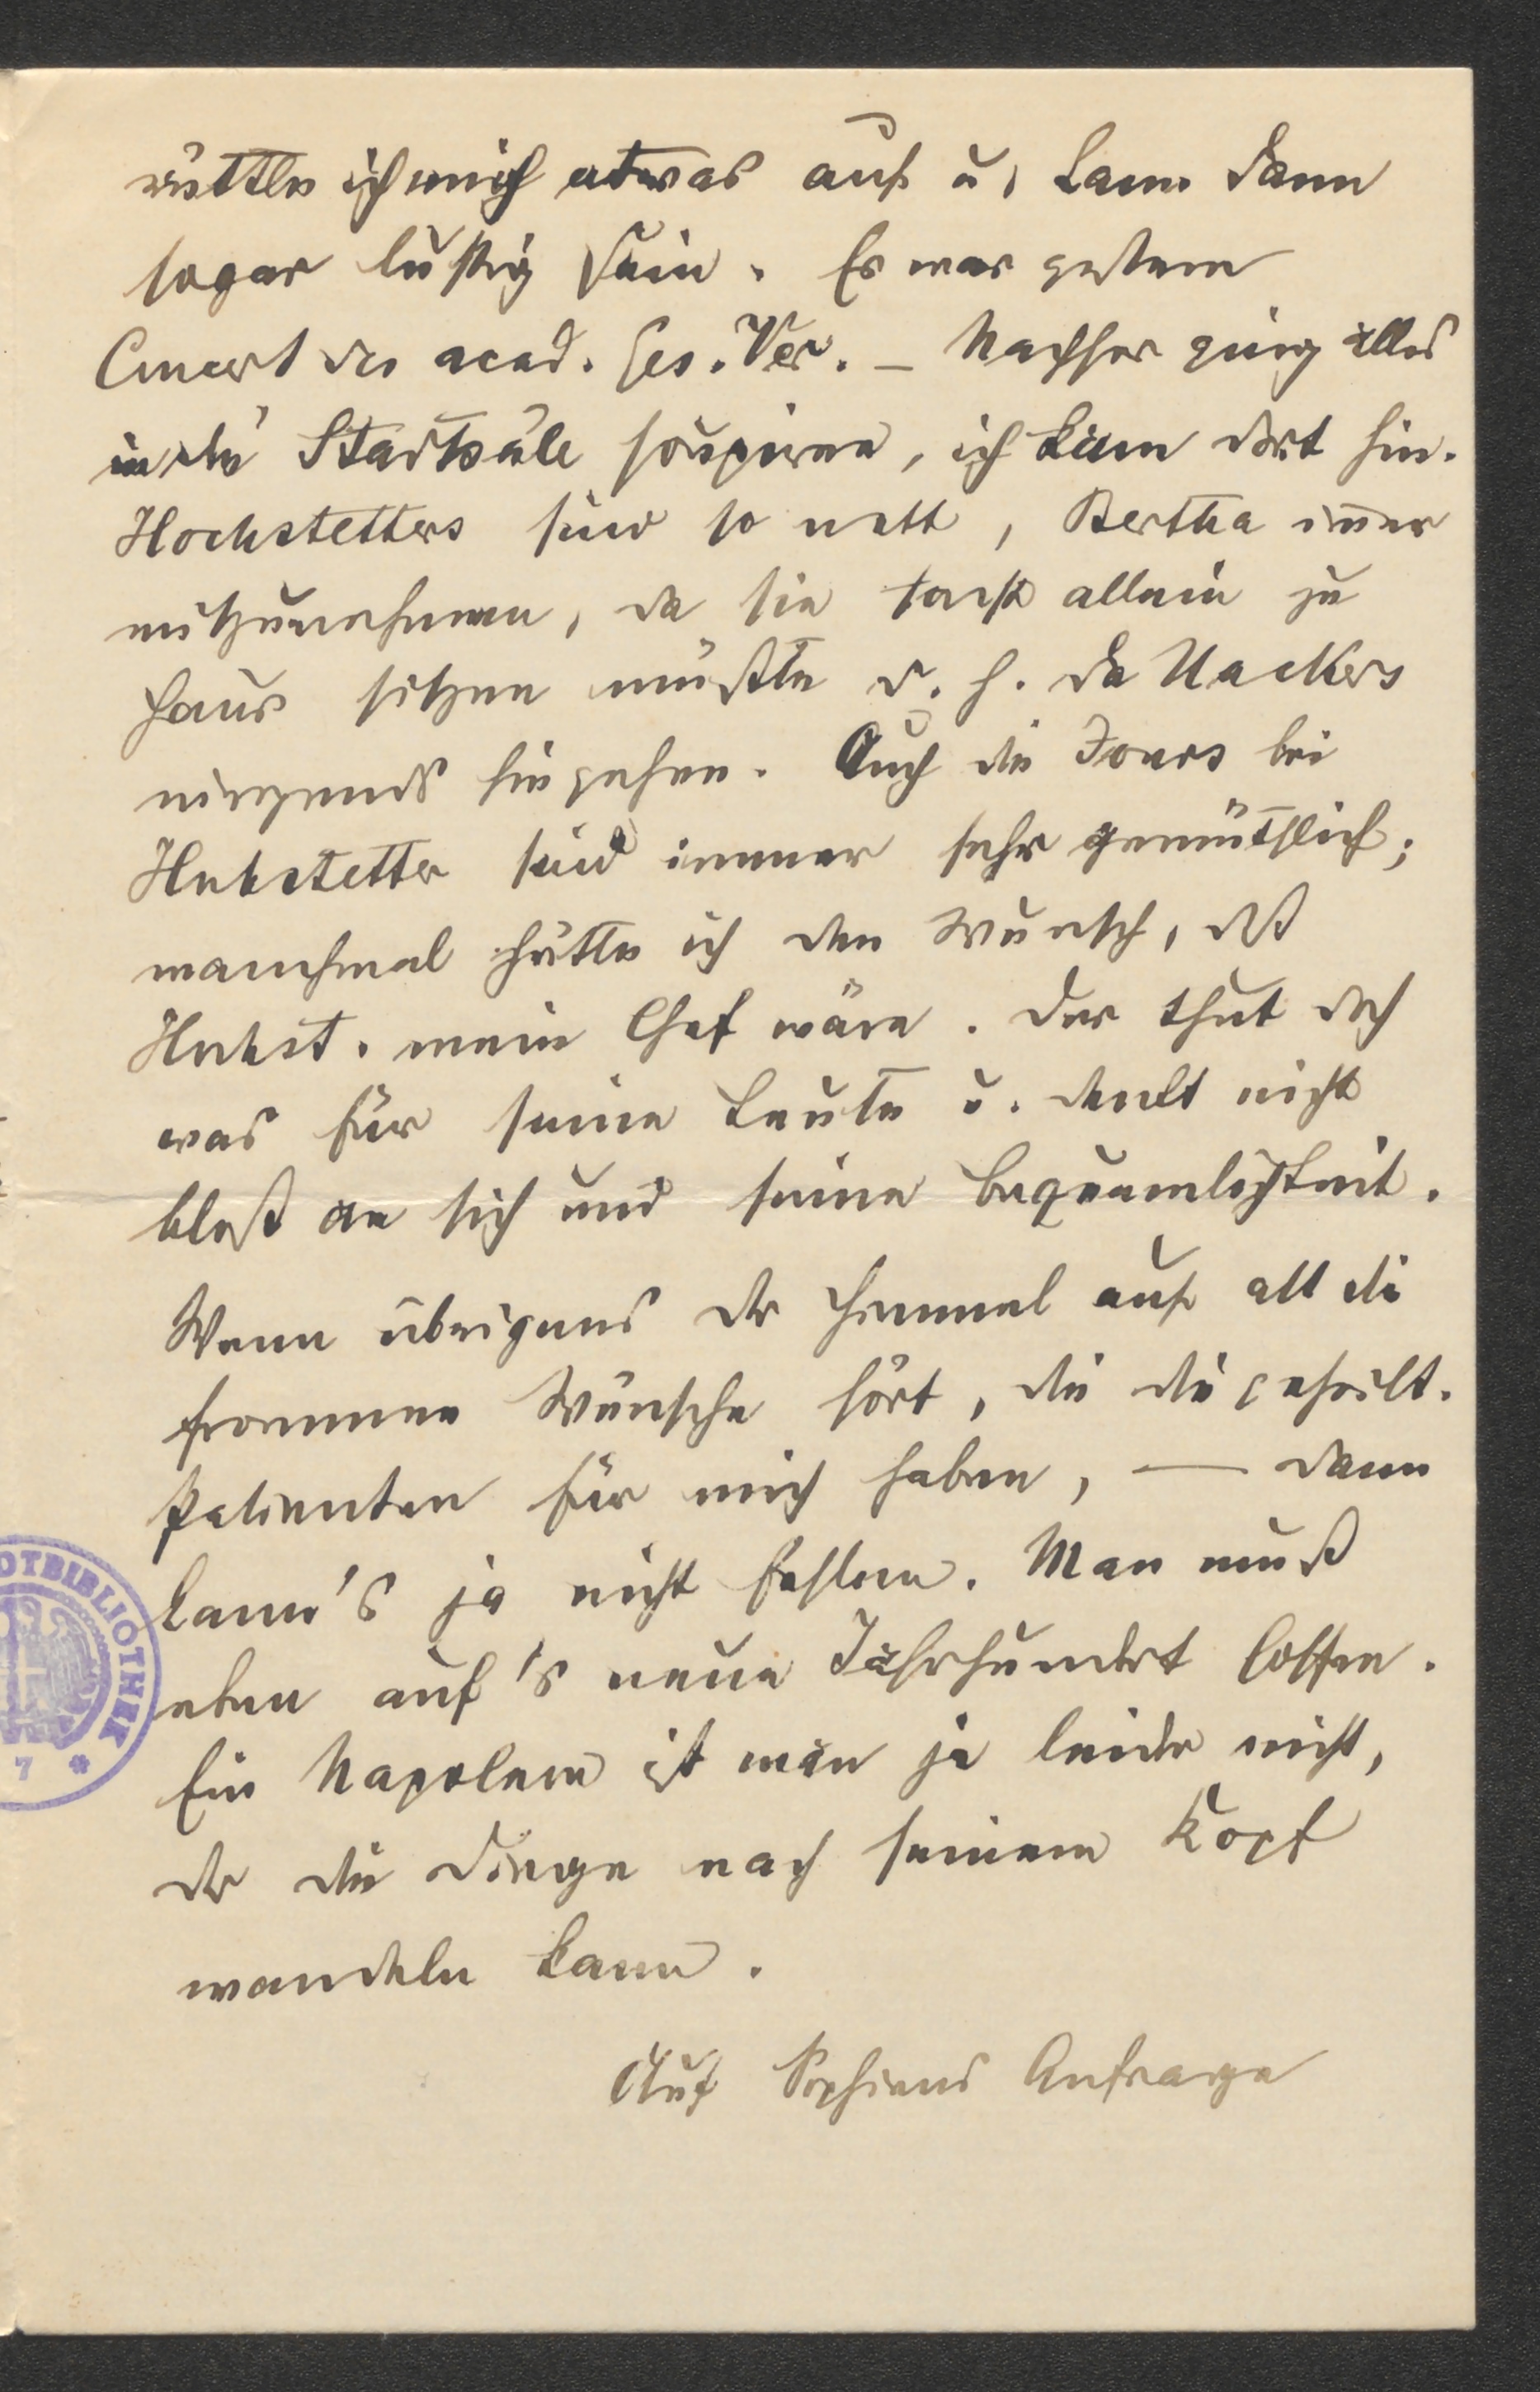 rüttle ich mich etwas auf u. kann dann
sogar lustig sein. Es war gestern
Concert des acad. Ges. Ver. – Nachher ging alles
in die Stadtsäle soupiren, ich kam dort hin.
Hochstetters sind so nett, Bertha im̄er
mitzunehmen, da sie sonst allein zu
Haus sitzen müßte d. h. da Nackers
nirgends hingehen. Auch die Jours bei
Hochstetter sind immer sehr gemüthlich;
manchmal hätte ich den Wunsch, daß
Hochst. mein Chef wäre. Der thut doch
was für seine Leute u. denkt nicht
bloß an sich und seine Bequemlichkeit.
Wenn übrigens der Himmel auf all die
frommen Wünsche hört, die die geheilt.
Patienten für mich haben, — dann
kann's ja nicht fehlen. Man muß
eben auf's neue Jahrhundert hoffen.
Ein Napoleon ist man ja leider nicht,
der die Dinge nach seinem Kopf
wandeln kann.
Auf Sophiens Anfrage
OTBIBLIOTHEK
7 *